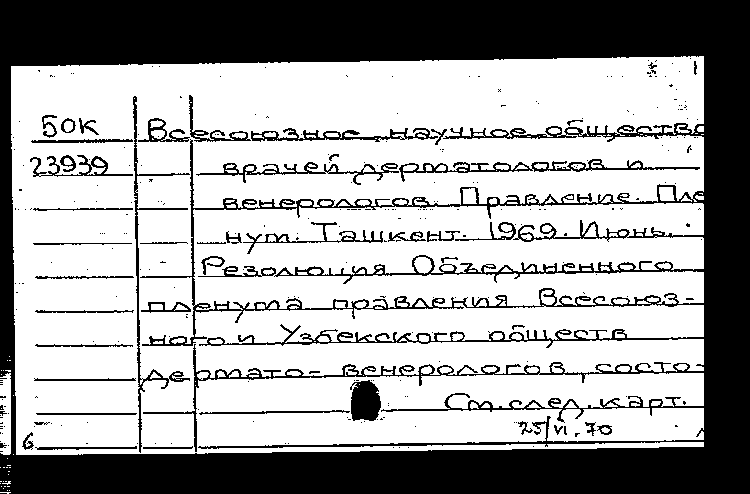 50К Всесоюзное научное общество
23939 врачей дерматологов и
венерологов. Правление. Пле
нум. Ташкент. 1969. Июнь.
Резолюция Объединенного
пленума правления Всесоюз-
ного и Узбекского обществ
дермато- венерологов, состо-
См. след. карт.
25/VI.70
6